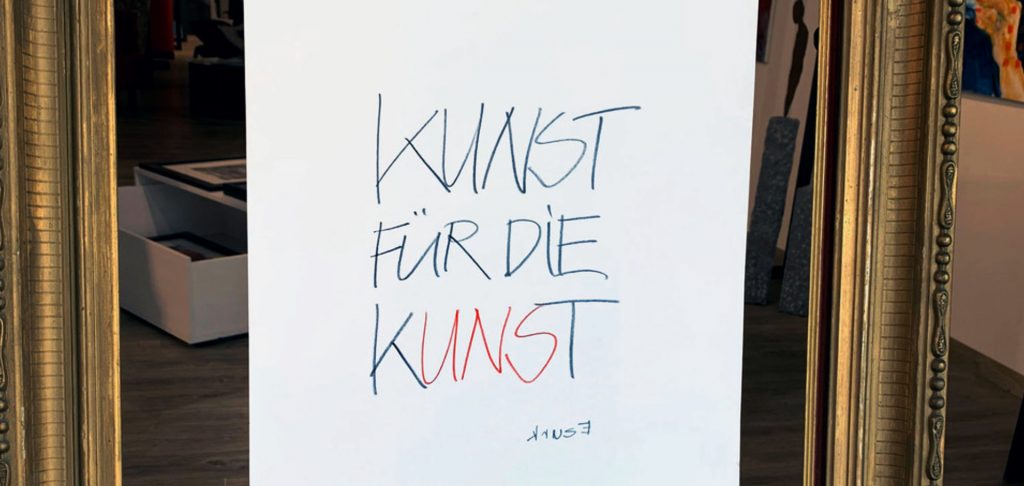 KUNST
FÜR DIE
KUNST